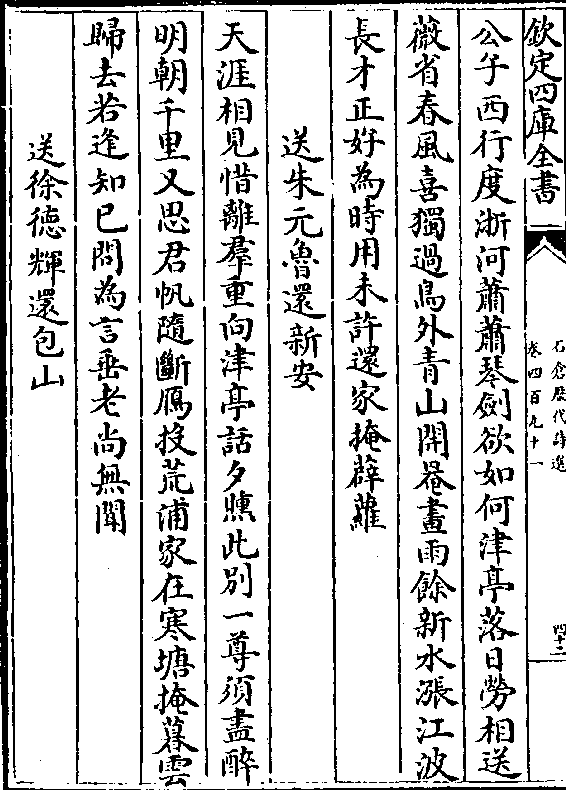 欽定四庫全書
石倉歷代詩選
卷四百九十一
四十二
公午西行度浙河蕭蕭琴劍欲如何津亭落日勞相送
薇省春風喜獨過鳥外青山開罨畫雨餘新水漲江波
長才正好為時用未許還家掩薜蘿
送朱元魯還新安
天涯相見惜離羣重向津亭話夕曛此别一尊須盡醉
明朝千里又思君帆隨斷鴈投荒浦家在寒塘掩暮雲
歸去若逢知已問為言垂老尚無聞
送徐德輝還包山